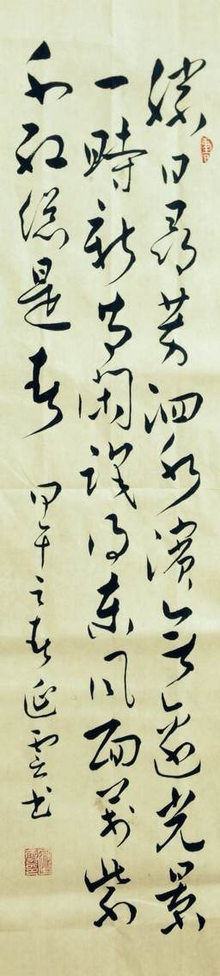 勝日尋芳泗水濱無邊光景
一時新等閑識得東風面萬紫
千紅總是春 甲午之春延雲書